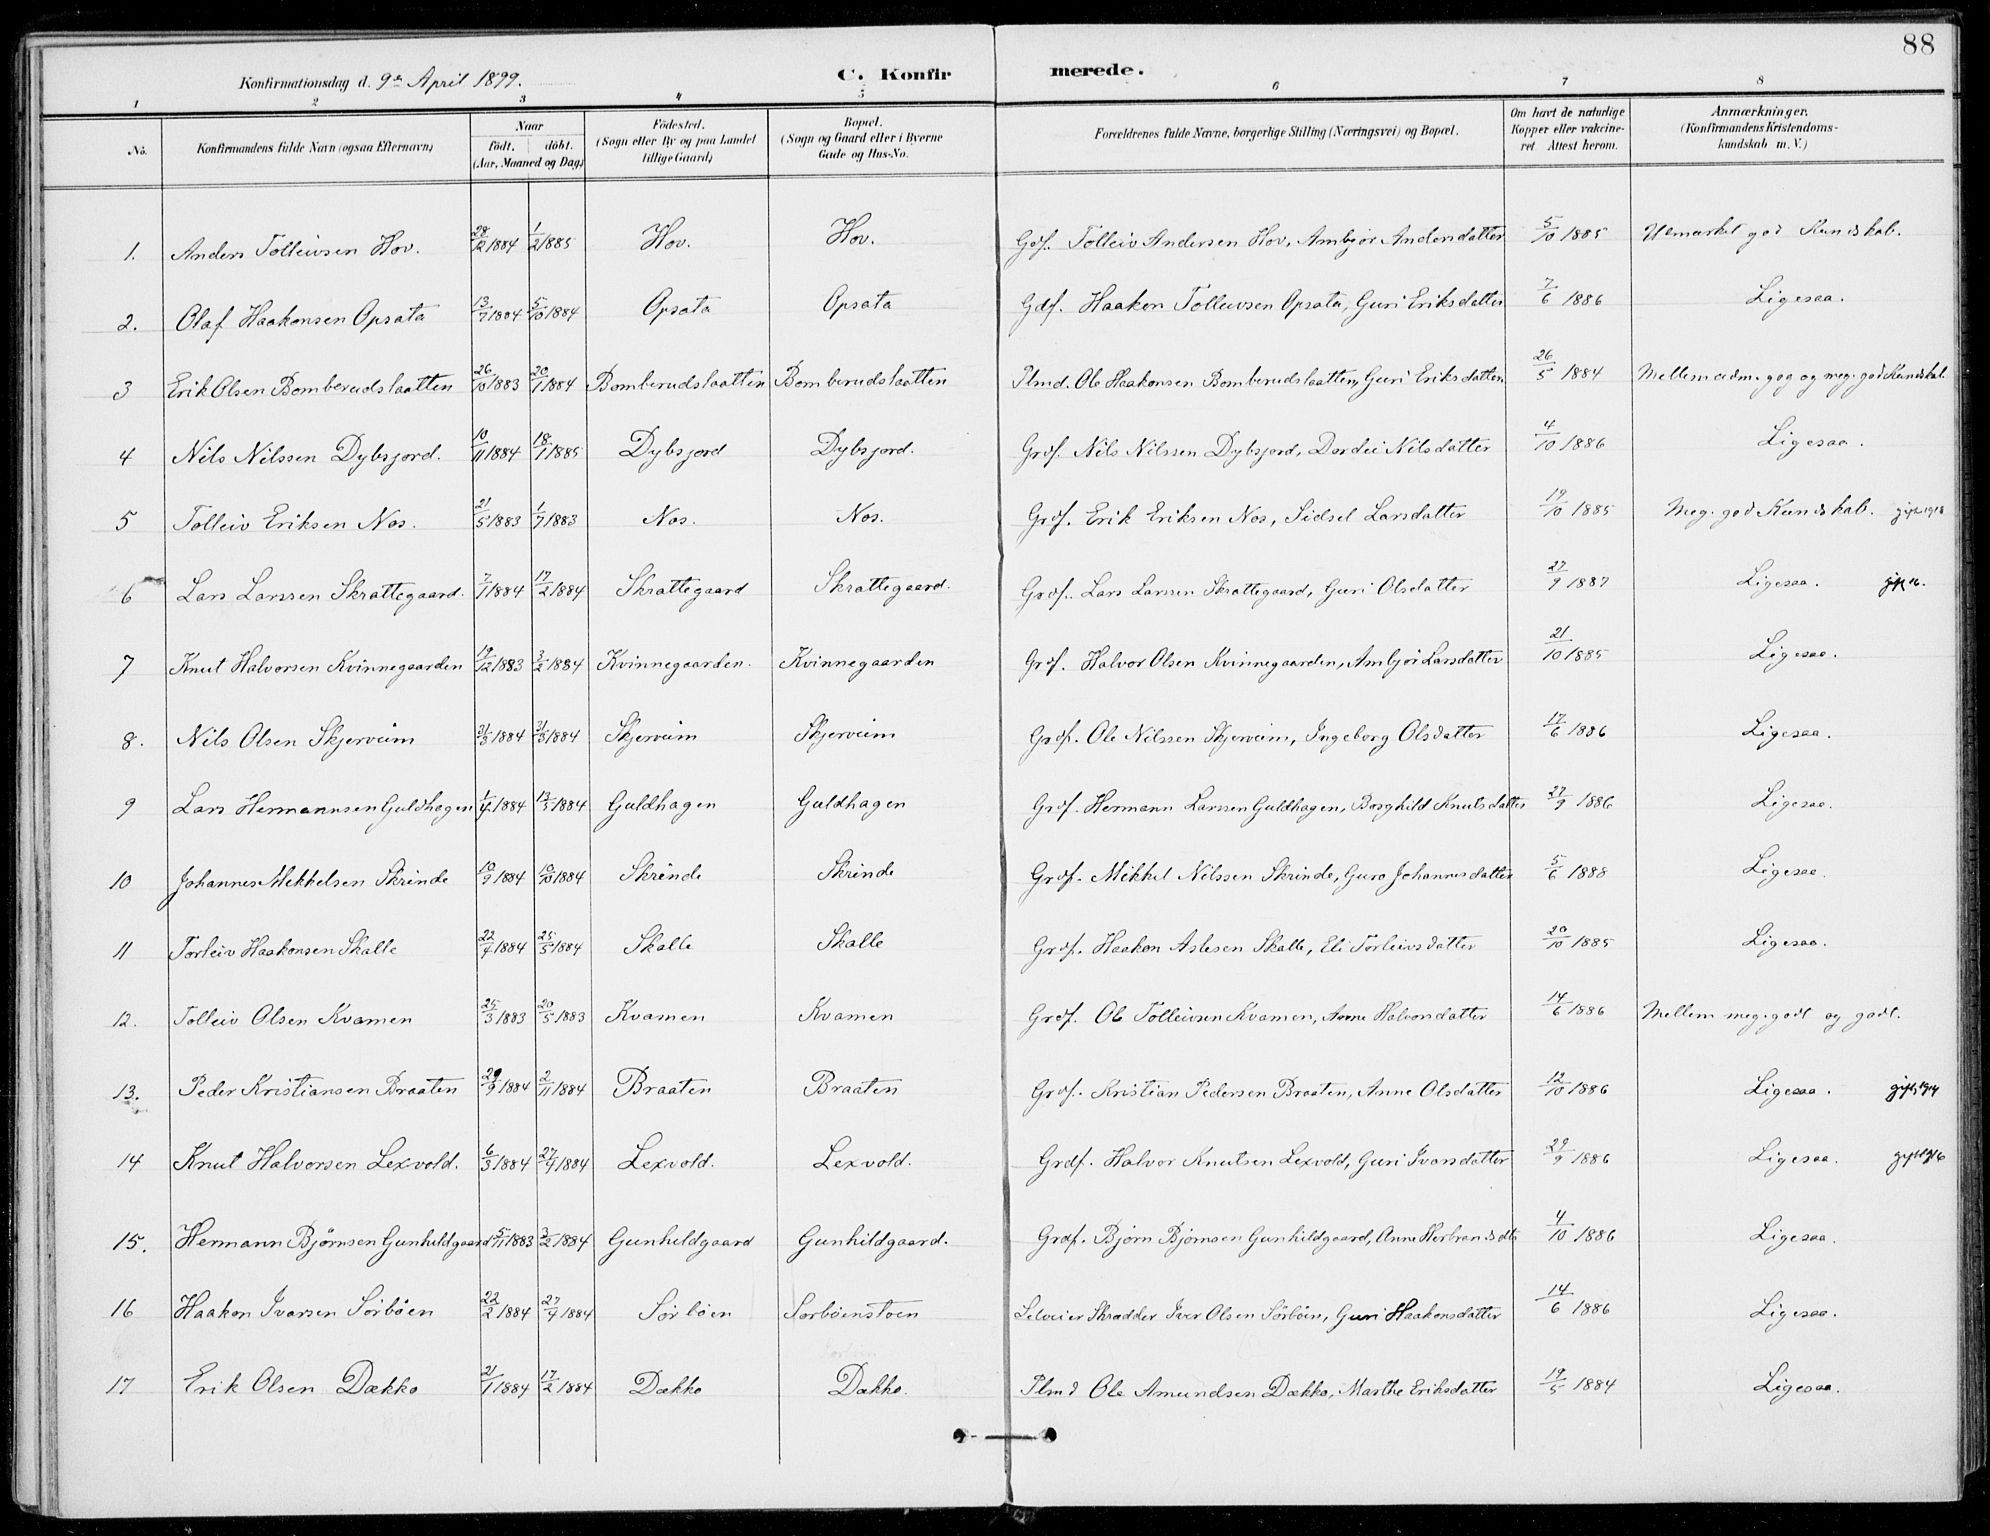 88
Konfirmationsdag d. 9de April 1899. C. Konfirmerede.
1 2 3 4 5 6 7 8
No. Konfirmandens fulde Navn (ogsaa Efternavn) Naar födt. döbt. (Aar, Maaned og Dag) Födested. (Sogn eller By og paa Landet tillige Gaard) Bopæl. (Sogn og Gaard eller i Byerne Gade og Hus-No. Forældrenes fulde Navne, borgerlige Stilling (Næringsvei) og Bopæl. Om havt de naturlige Kopper eller vakcineret Attest herom. Anmærkninger. (Konfirmandens Kristendomskundskab m. V.)
1. Anders Tolleivsen Hov. 28/12 1884 1/2 1885 Hov. Hov. Gdf. Tolleiv Andersen Hov, Ambjør Andersdatter 5/10 1885 Udmærket god Kundskab.
2. Olaf Haakonsen Opsata 13/7 1884 5/10 1884 Opsata Opsata Gdf. Haakon Tolleivsen Opsata, Guri Eriksdatter 7/6 1886 Ligesaa.
3 Erik Olsen Bomberudslaatten 26/10 1883 20/1 1884 Bomberudslaatten Bomberudslaatten Plmd. Ole Haakonsen Bomberudslaatten, Guri Eriksdatter 26/5 1884 Mellem udm. god og meg. god Kundskab.
4 Nils Nilssen Dybsjord. 10/11 1884 18/1 1885 Dybsjord Dybsjord. Grdf. Nils Nilssen Dybsjord, Dordei Nilsdatter 4/10 1886 Ligesaa.
5 Tolleiv Eriksen Nos. 21/5 1883 1/7 1883 Nos. Nos. Grdf. Erik Eriksen Nos, Sidsel Larsdatter 19/10 1885 Meg. god Kundskab. gift 1918
6 Lars Larssen Skrattegaard. 7/1 1884 17/2 1884 Skrattegaard Skrattegaard. Grdf. Lars Larssen Skrattegaard, Guri Olsdatter 27/9 1887 Ligesaa. gift
7 Knut Halvorsen Kvinnegaarden 19/12 1883 3/2 1884 Kvinnegaarden. Kvinnegaarden Grdf. Halvor Olsen Kvinnegaarden, Ambjør Larsdatter 21/10 1885 Ligesaa.
8. Nils Olsen Skjerveim 31/3 1884 31/5 1884 Skjerveim Skjerveim Grdf. Ole Nilssen Skjerveim, Ingeborg Olsdatter 17/6 1886 Ligesaa.
9 Lars Hermannsen Guldhagen 1/4 1884 13/5 1884 Guldhagen Guldhagen Grdf. Hermann Larssen Guldhagen, Borghild Knutsdatter 27/9 1886 Ligesaa.
10 Johannes Mikkelsen Skrinde 10/9 1884 10/10 1884 Skrinde Skrinde Grdf. Mikkel Nilssen Skrinde, Guro Johannesdatter 5/6 1888 Ligesaa.
11 Torleiv Haakonsen Skalle 22/4 1884 25/5 1884 Skalle Skalle Grdf. Haakon Aslesen Skalle, Eli Torleivsdatter 20/10 1885 Ligesaa.
12. Tolleiv Olsen Kvamen 25/3 1883 20/5 1883 Kvamen Kvamen Grdf. Ole Tolleivsen Kvamen, Anne Halvorsdatter 14/6 1886 Mellem meg. godt og godt.
13. Peder Kristiansen Braaten 29/9 1884 2/11 1884 Braaten Braaten Grdf. Kristian Pedersen Braaten, Anne Olsdatter 12/10 1886 Ligesaa. gift 1914
14 Knut Halvorsen Lexvold. 6/3 1884 27/4 1884 Lexvold. Lexvold. Grdf. Halvor Knutsen Lexvold, Guri Ivarsdatter 29/9 1886 Ligesaa. gift 1916
15. Hermann Bjørnsen Gunhildgaard 5/11 1883 3/2 1884 Gunhildgaard Gunhildgaard. Grdf. Bjørn Bjørnsen Gunhildgaard, Anne Herbrandsdtr 4/10 1886 Ligesaa.
16 Haakon Ivarsen Sörböen 22/2 1884 27/4 1884 Sörböen Sorböenstoen Selveier Skrædder Iver Olsen Sörböen, Guri Haakonsdatter 14/6 1886 Ligesaa.
17 Erik Olsen Dækko 21/1 1884 17/2 1884 Dækko Dækko. Plmd Ole Amundsen Dækko, Marthe Eriksdatter 19/5 1884 Ligesaa.